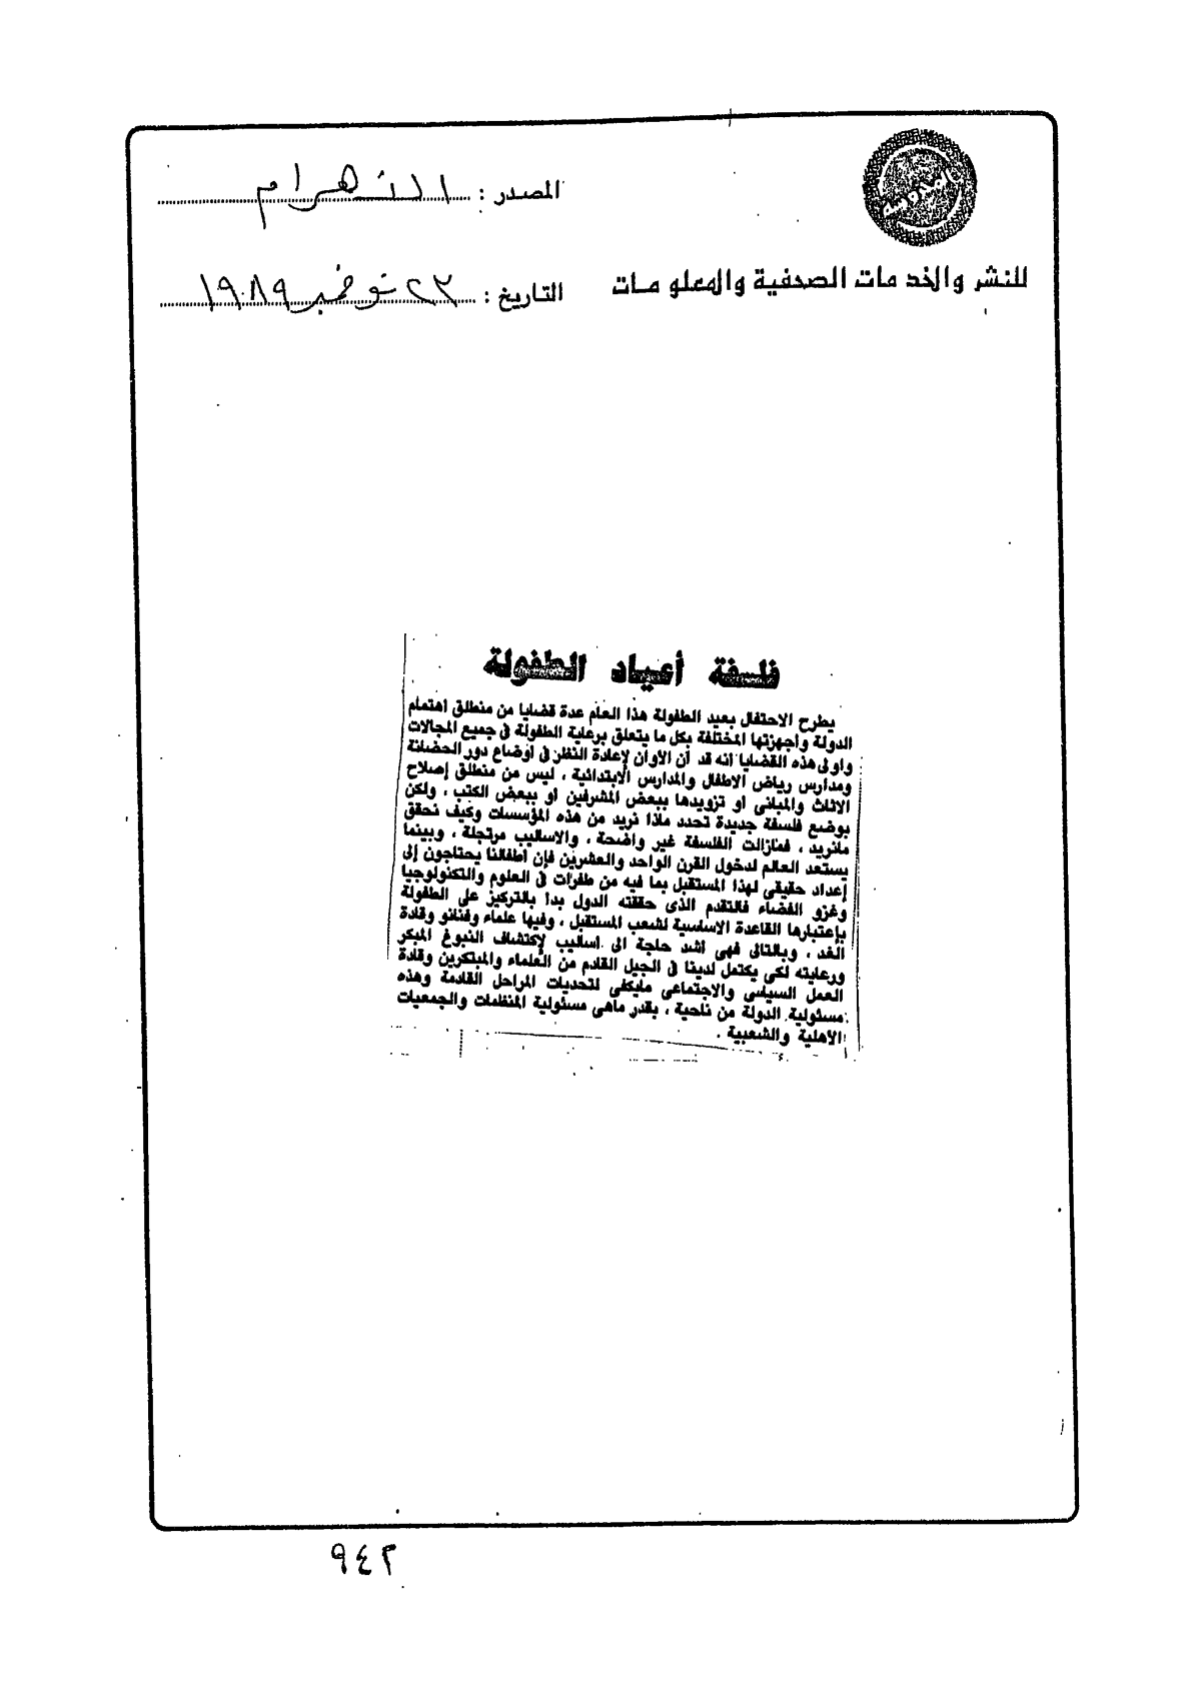 المصدر : الأهرام
للنشر والخدمات الصحفية والمعلومات
التاريخ : ٢٣ نوفمبر ١٩٨٩
فلسفة أعياد الطفولة
يطرح الاحتفال بعيد الطفولة هذا العام عدة قضايا من منطلق اهتمام
الدولة واجهزتها المختلفة بكل ما يتعلق برعاية الطفولة فى جميع المجالات
واولى هذه القضايا انه قد آن الأوان لإعادة النظر فى اوضاع دور الحضانة
ومدارس رياض الاطفال والمدارس الابتدائية ، ليس من منطلق إصلاح
الاثاث والمبانى او تزويدها ببعض المشرفين او ببعض الكتب ، ولكن
بوضع فلسفة جديدة تحدد ماذا نريد من هذه المؤسسات وكيف نحقق
مانريد ، فمازالت الفلسفة غير واضحة ، والاساليب مرتجلة ، وبينما
يستعد العالم لدخول القرن الواحد والعشرين فإن اطفالنا يحتاجون إلى
إعداد حقيقى لهذا المستقبل بما فيه من طفرات فى العلوم والتكنولوجيا
وغزو الفضاء فالتقدم الذى حققته الدول بدا بالتركيز على الطفولة
بإعتبارها القاعدة الاساسية لشعب المستقبل ، وفيها علماء وفنانو وقادة
الغد ، وبالتالى فهى اشد حاجة الى اساليب لإكتشاف النبوغ المبكر
ورعايته لكى يكتمل لدينا فى الجيل القادم من العلماء والمبتكرين وقادة
العمل السياسى والاجتماعى مايكفى لتحديات المراحل القادمة وهذه
مسئولية الدولة من ناحية ، بقدر ماهى مسئولية المنظمات والجمعيات
الأهلية والشعبية .
٩٤٢